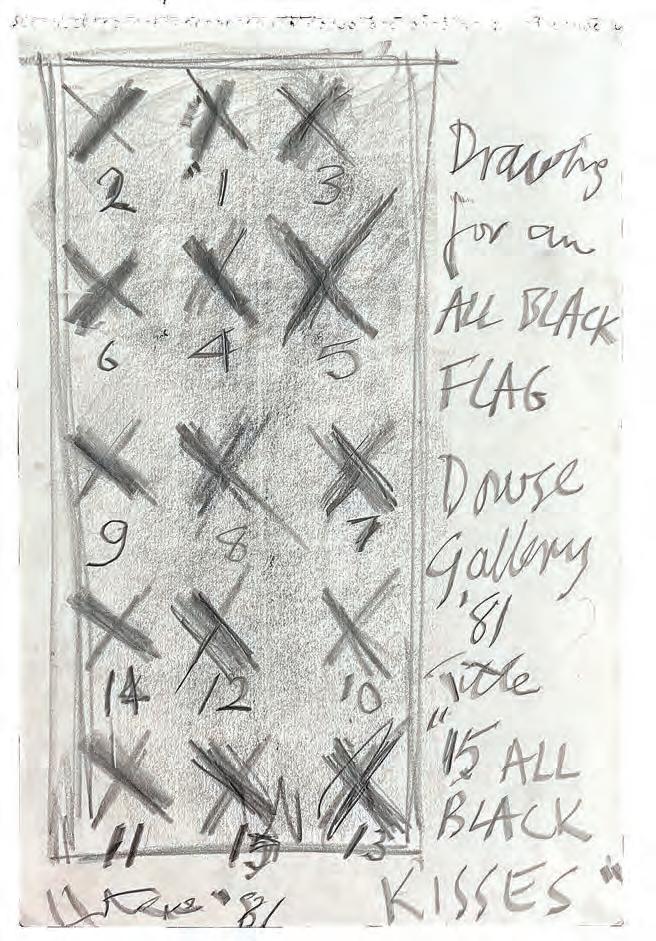 2 1 3
6 4 5
9 8 7
14 12 10
11 15 13
Drawing
for an
ALL BLACK
FLAG
Dowse
Gallery
'81
Title
"15 ALL
BLACK
KISSES"
81